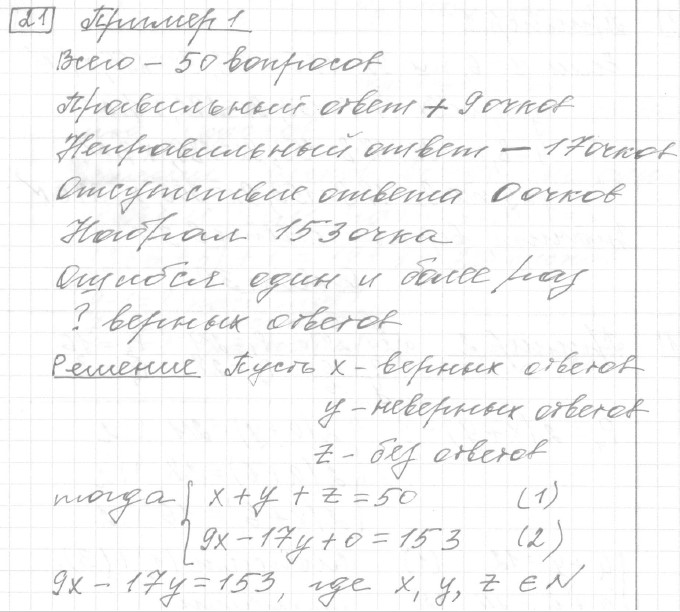 21 Пример 1
Всего – 50 вопросов
Правильный ответ + 9 очков
Неправильный ответ – 17 очков
Отсутствие ответа 0 очков
Набрал 153 очка
Ошибся один и более раз
? верных ответов
Решение Пусть x - верных ответов
y - неверных ответов
z - без ответов
тогда { x + y + z = 50 (1)
9x - 17y + 0 = 153 (2)
9x - 17y = 153, где x, y, z ∈ N